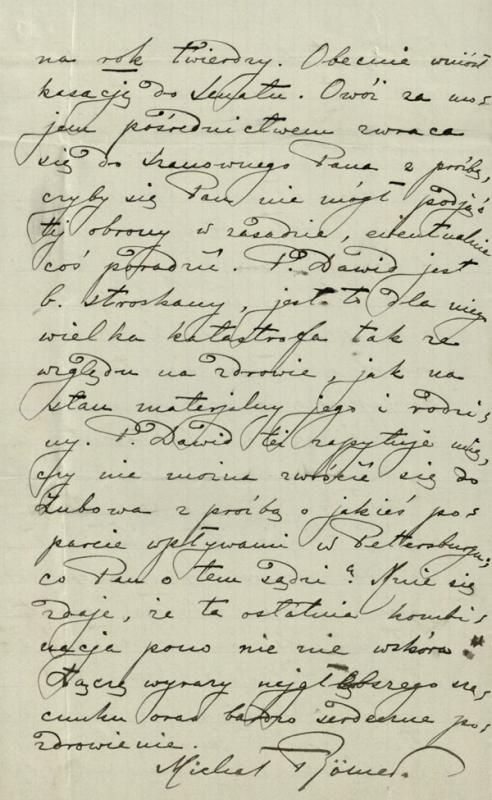 na rok twierdzy. Obecnie wniósł
kasację do Senatu. Owóż za mo-
jem pośrednictwem zwraca
się do Szanownego Pana z prośbą,
czyby się Pan nie mógł podjąć
tej obrony w zasadzie, ewentualnie
coś poradzić. P. Dawid jest
b. stroskany, jest to dla niego
wielka katastrofa tak ze
względu na zdrowie, jak na
stan materjalny jego i rodzi-
ny. P. Dawid też zapytuje mię,
czy nie można zwrócić się do
Zubowa z prośbą o jakieś po-
parcie wpływami w Petersburgu;
co Pan o tem sądzi? Mnie się
zdaje, że ta ostatnia kombi-
nacja pono nic nie wskóra
Łączę wyrazy najgłębszego sza-
cunku oraz bardzo serdeczne po-
zdrowienie.
Michał Römer.